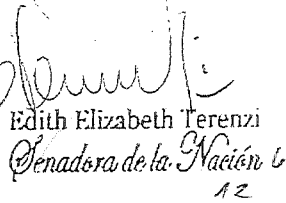 Edith Elizabeth Terenzi
Senadora de la Nación
12